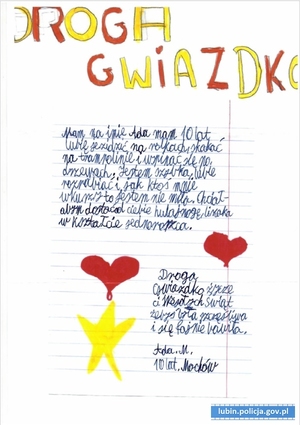 DROGA
GWIAZDKO
Mam na imię Ada mam 10 lat
lubię jeździć na rolkach, skakać
na trampolinie i wspinać się po
drzewach. Jestem szybka, lubię
rozrabiać i jak ktoś mnie
wkurzy to jestem nie miła. Chciała-
abym dostać od ciebie hulajnogę, lizaka
w kształcie jednorożca.
Droga
Gwiazdko życzę
ci Wesołych Świąt
żebyś była szczęśliwa
i się fajnie bawiła.
Ada. M.
10 lat. Moców
lubin.policja.gov.pl